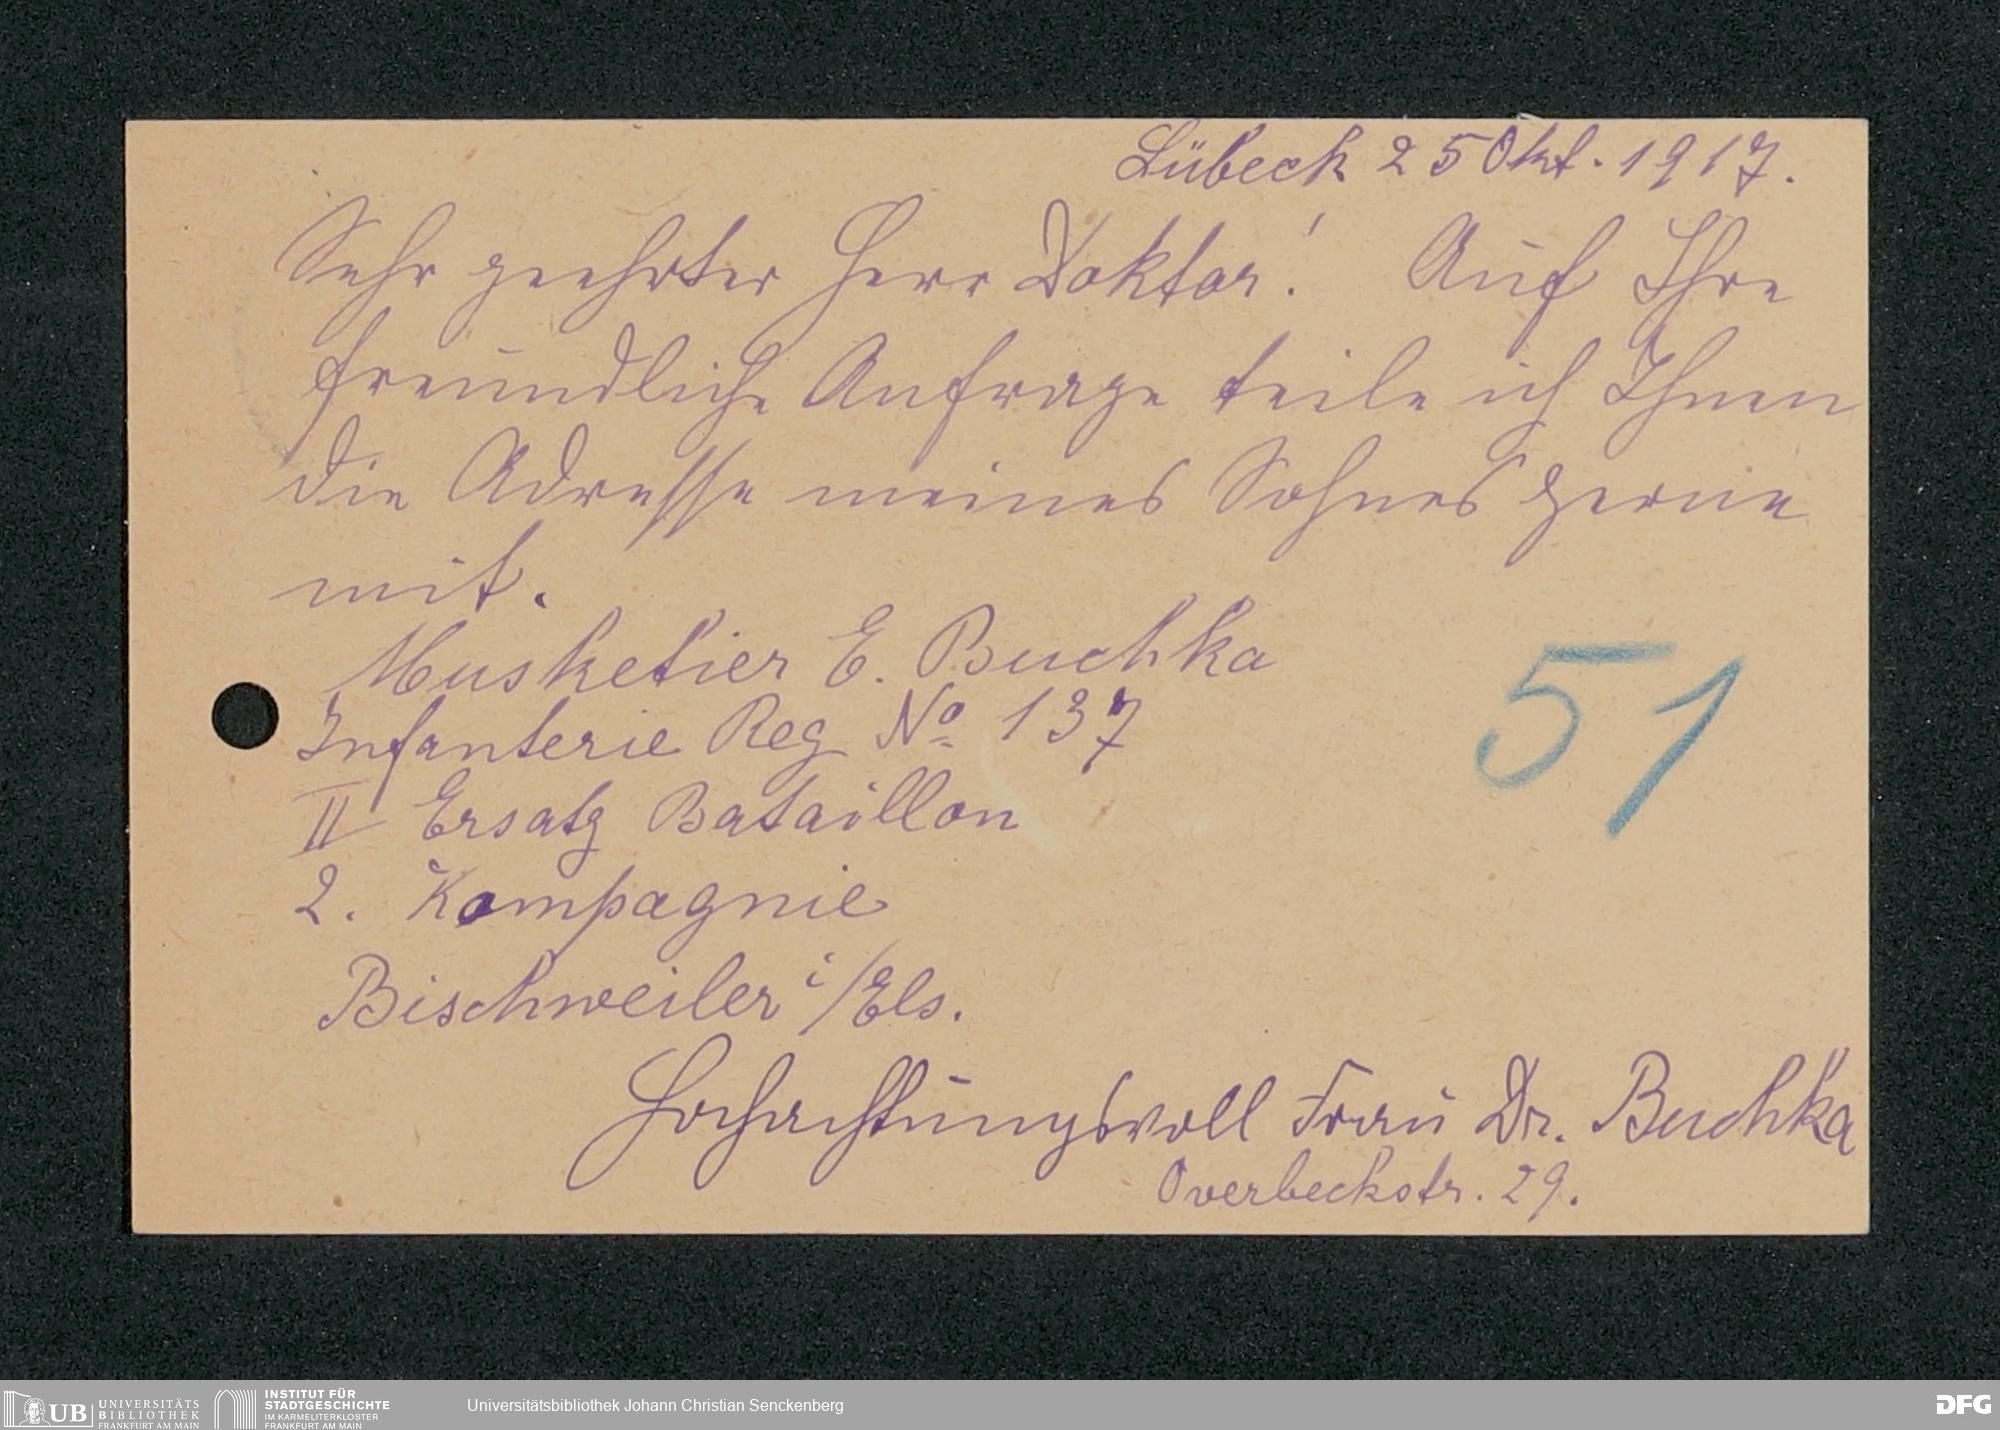 Lübeck 25 Okt. 1917.
Sehr geehrter Herr Doktor! Auf Ihre
freundliche Anfrage teile ich Ihnen
die Adresse meines Sohnes gerne
mit.
Musketier E. Buchka
Infanterie Reg No 137
II Ersatz Bataillon
2. Kompagnie
Bischweiler i/Els.
51
Hochachtungsvoll Frau Dr. Buchka
Overbeckstr. 29.
UB UNIVERSITÄTS
BIBLIOTHEK
FRANKFURT AM MAIN
INSTITUT FÜR
STADTGESCHICHTE
IM KARMELITERKLOSTER
FRANKFURT AM MAIN
Universitätsbibliothek Johann Christian Senckenberg
DFG